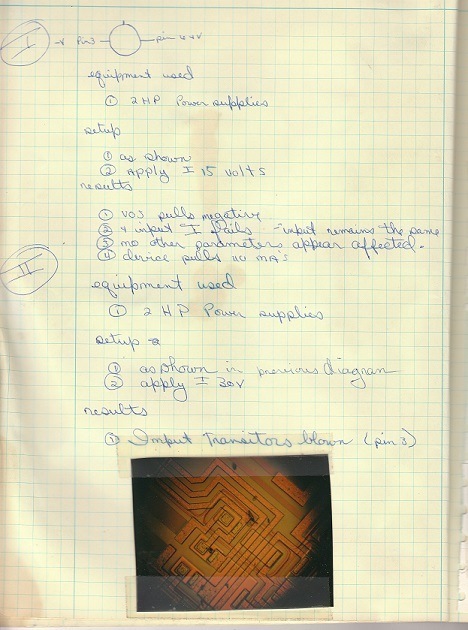 I -V Pin 3 pin 4 +V
equipment used
① 2 HP Power supplies
setup
① as shown
② Apply ± 15 volts
results
① VOS pulls negative
② + input I fails - input remains the same
③ no other parameters appear affected.
④ device pulls 110 MA's
II
equipment used
① 2 HP Power supplies
setup
① as shown in previous diagram
② apply ± 30V
results
① Input Transitors blown (pin 3)